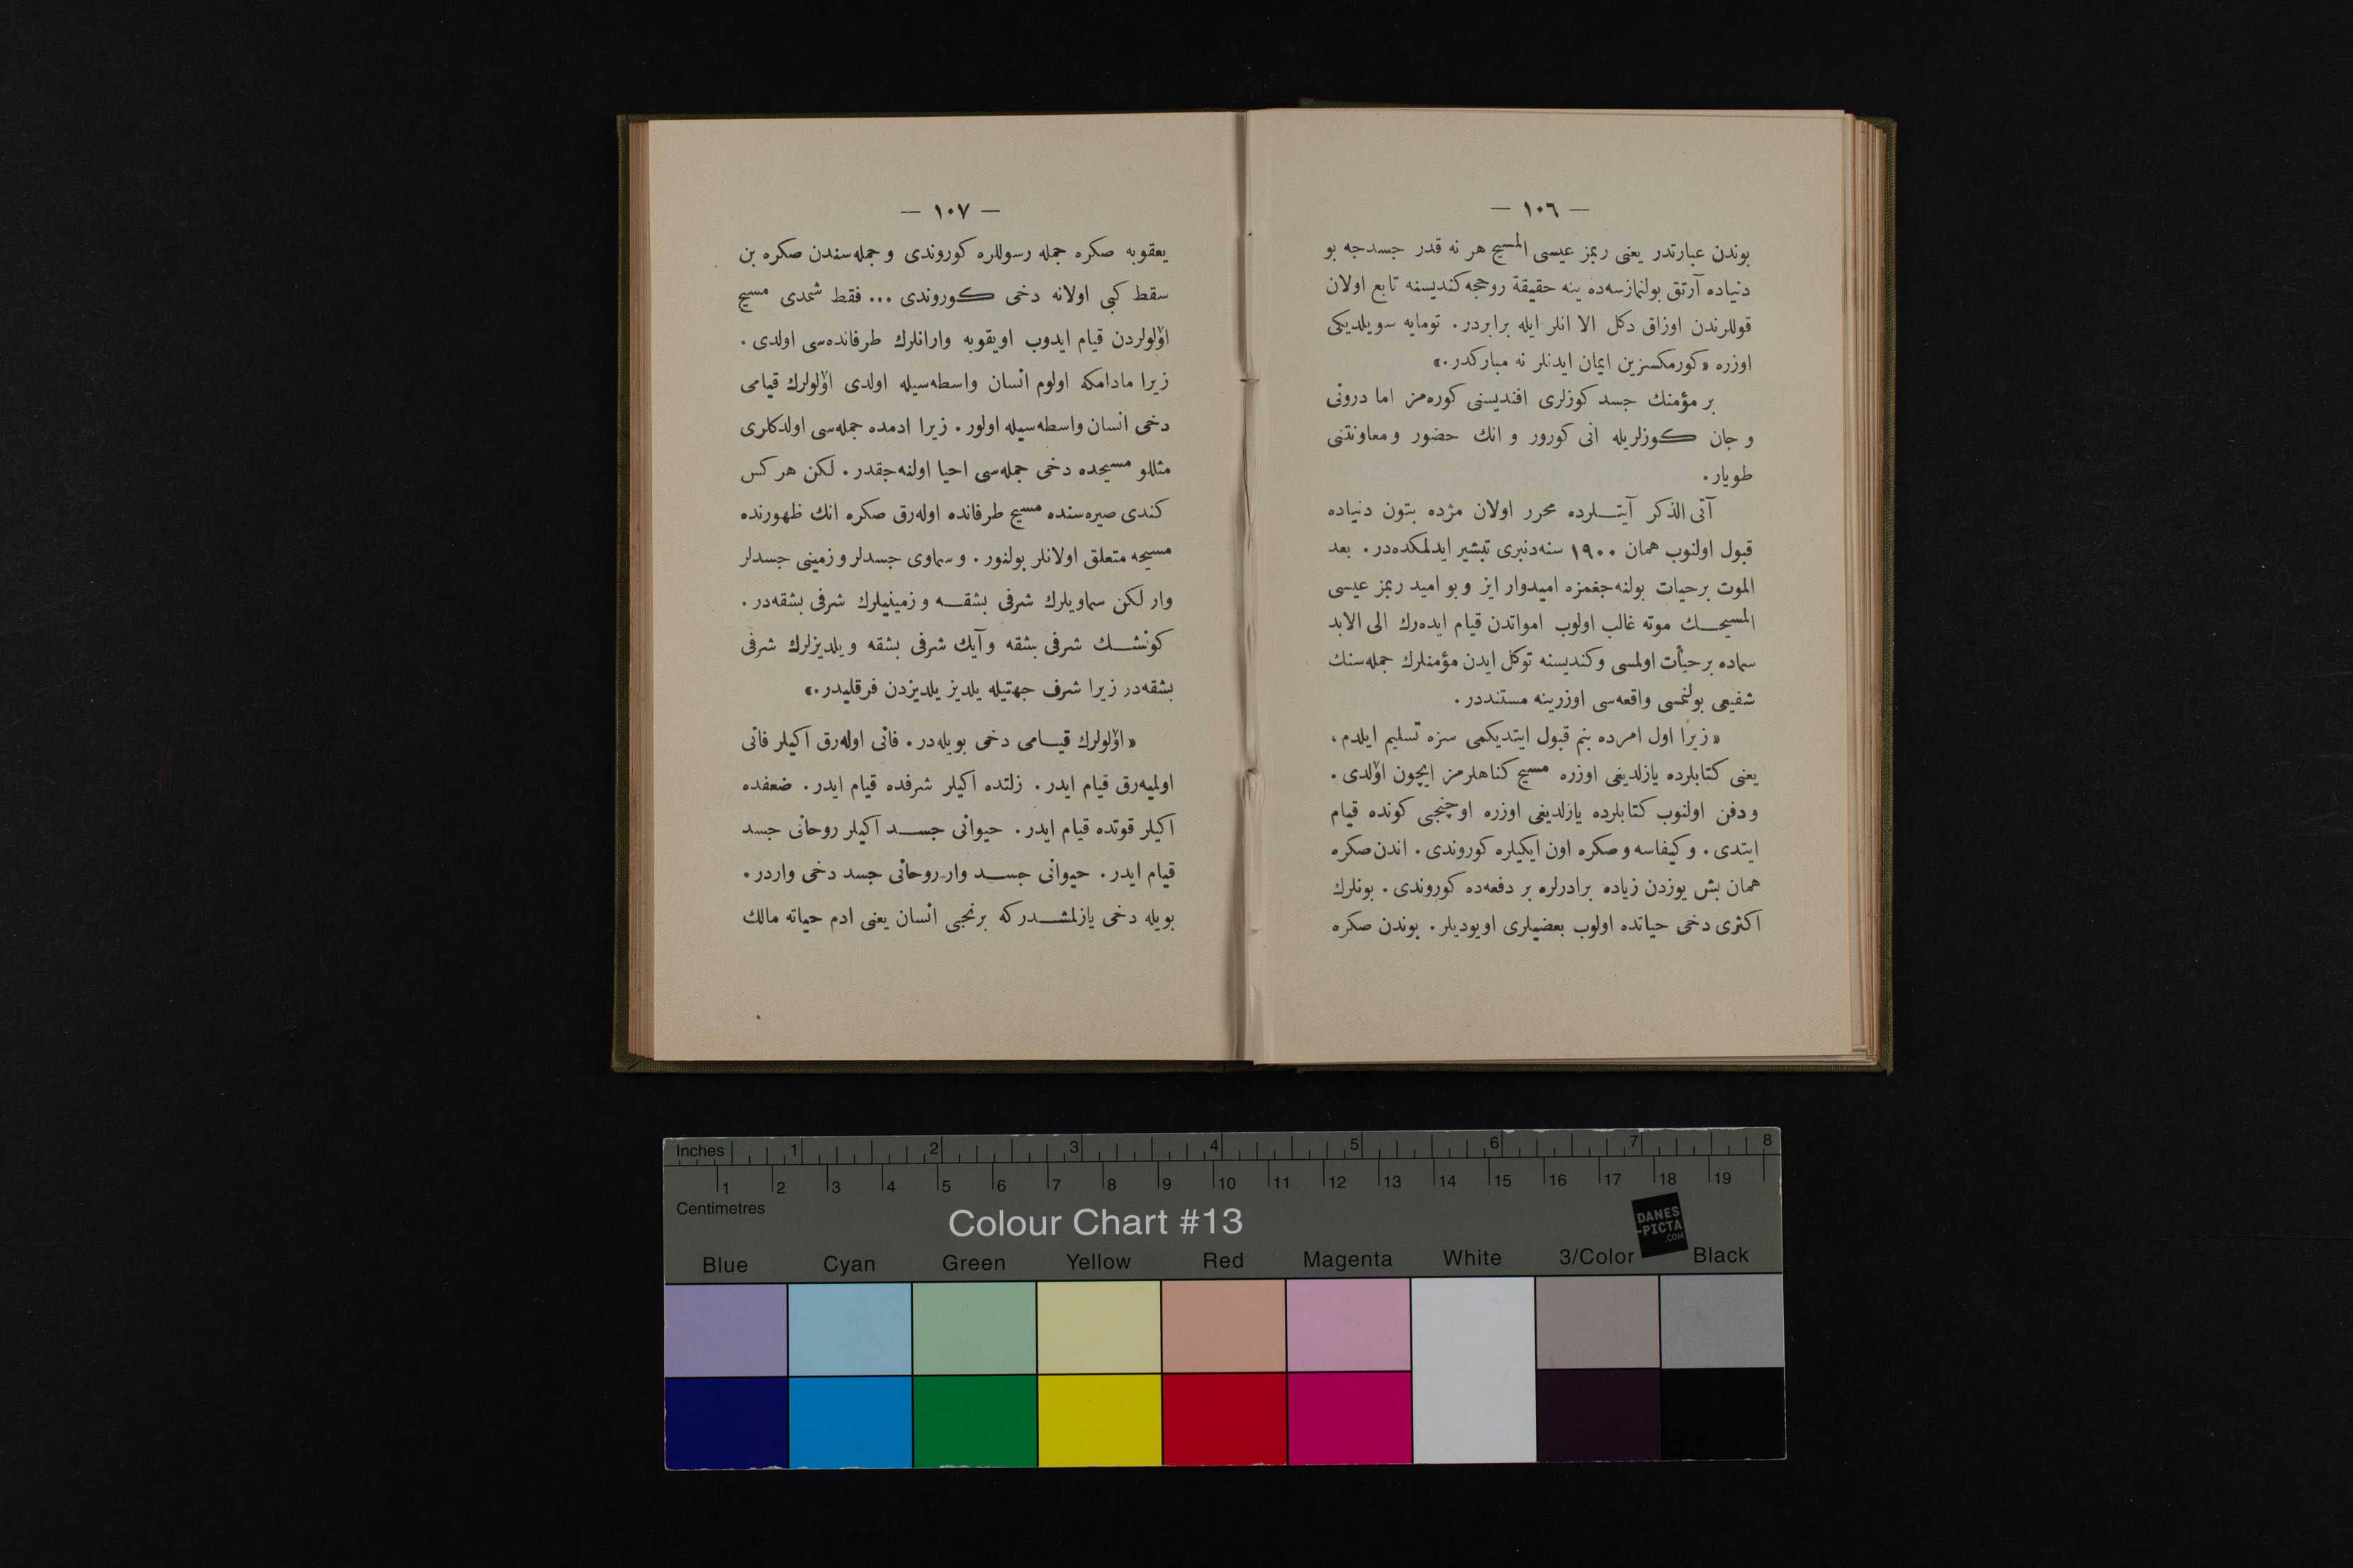 — ١٠٦ —
بوندن عبارتدر يعنى ربمز عيسى المسيح هر نه قدر جسدجه بو
دنياده آرتق بولنمازسه‌ده ينه حقيقة روحجه كنديسنه تابع اولان
قوللرندن اوزاق دكل الا انلر ايله برابردر. تومايه سويلديكى
اوزره «كورمكسزين ايمان ايدنلر نه مباركدر.»
بر مؤمنك جسد كوزلرى افنديسنى كوره‌مز اما درونى
و جان كوزلريله انى كورور و انك حضور و معاونتنى
طويار.
آتى الذكر آيتلرده محرر اولان مژده بتون دنياده
قبول اولنوب همان ١٩٠٠ سنه‌دنبرى تبشير ايدلمكده‌در. بعد
الموت برحيات بولنه‌جغمزه اميدوار ايز و بو اميد ربمز عيسى
المسيحك موته غالب اولوب امواتدن قيام ايده‌رك الى الابد
سماده برحيأت اولمسى و كنديسنه توكل ايدن مؤمنلرك جمله‌سنك
شفيعى بولنمسى واقعه‌سى اوزرينه مستنددر.
«زيرا اول امرده بنم قبول ايتديكمى سزه تسليم ايلدم،
يعنى كتابلرده يازلديغى اوزره مسيح كناهلرمز ايچون اؤلدى.
و دفن اولنوب كتابلرده يازلديغى اوزره اوچنجى كونده قيام
ايتدى. و كيفاسه و صكره اون ايكيلره كوروندى. اندن صكره
همان بش يوزدن زياده برادرلره بر دفعه‌ده كوروندى. بونلرك
اكثرى دخى حياتده اولوب بعضيلرى اويوديلر. بوندن صكره
— ١٠٧ —
يعقوبه صكره جمله رسوللره كوروندى و جمله‌سندن صكره بن
سقط كبى اولانه دخى كوروندى ... فقط شمدى مسيح
اؤلولردن قيام ايدوب اويقويه وارانلرك طرفانده‌سى اولدى.
زيرا مادامكه اولوم انسان واسطه‌سيله اولدى اؤلولرك قيامى
دخى انسان واسطه‌سيله اولور. زيرا ادمده جمله‌سى اولدكلرى
مثللو مسيحده دخى جمله‌سى احيا اولنه‌جقدر. لكن هر كس
كندى صيره‌سنده مسيح طرفانده اوله‌رق صكره انك ظهورنده
مسيحه متعلق اولانلر بولنور. و سماوى جسدلر و زمينى جسدلر
وار لكن سماويلرك شرفى بشقه و زمينيلرك شرفى بشقه‌در.
كونشك شرفى بشقه و آيك شرفى بشقه و يلديزلرك شرفى
بشقه‌در زيرا شرف جهتيله يلديز يلديزدن فرقليدر.»
«اؤلولرك قيامى دخى بويله‌در. فانى اوله‌رق اكيلر فانى
اولميه‌رق قيام ايدر. زلتده اكيلر شرفده قيام ايدر. ضعفده
اكيلر قوتده قيام ايدر. حيوانى جسد اكيلر روحانى جسد
قيام ايدر. حيوانى جسد وار روحانى جسد دخى واردر.
بويله دخى يازلمشدر كه برنجى انسان يعنى ادم حياته مالك
Inches 1 2 3 4 5 6 7 8
1 2 3 4 5 6 7 8 9 10 11 12 13 14 15 16 17 18 19
Centimetres
Colour Chart #13
DANES
-PICTA
.COM
Blue Cyan Green Yellow Red Magenta White 3/Color Black